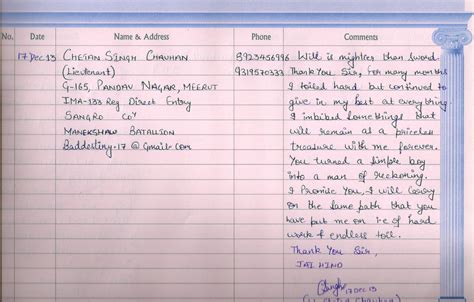 No. Date Name & Address Phone Comments
17 Dec. 13 CHETAN SINGH CHAUHAN 8923456996 Will is mightier than Sword.
(Lieutenant) 9319570333 Thank You Sir, For many months
G-165, PANDAV NAGAR, MEERUT I toiled hard but continued to
IMA-133 Reg Direct Entry give in my best at everything.
SANGRO COY I imbibed Somethings that
MANEKSHAW BATALION will remain as a priceless
Baddestiny.17 @ Gmail.com treasure with me forever.
You turned a Simple boy
into a man of reckoning.
I Promise You, I will carry
on the same path that you
have put me on i.e of hard
work & endless toil.
Thank You Sir,
JAI HIND
17 DEC 13